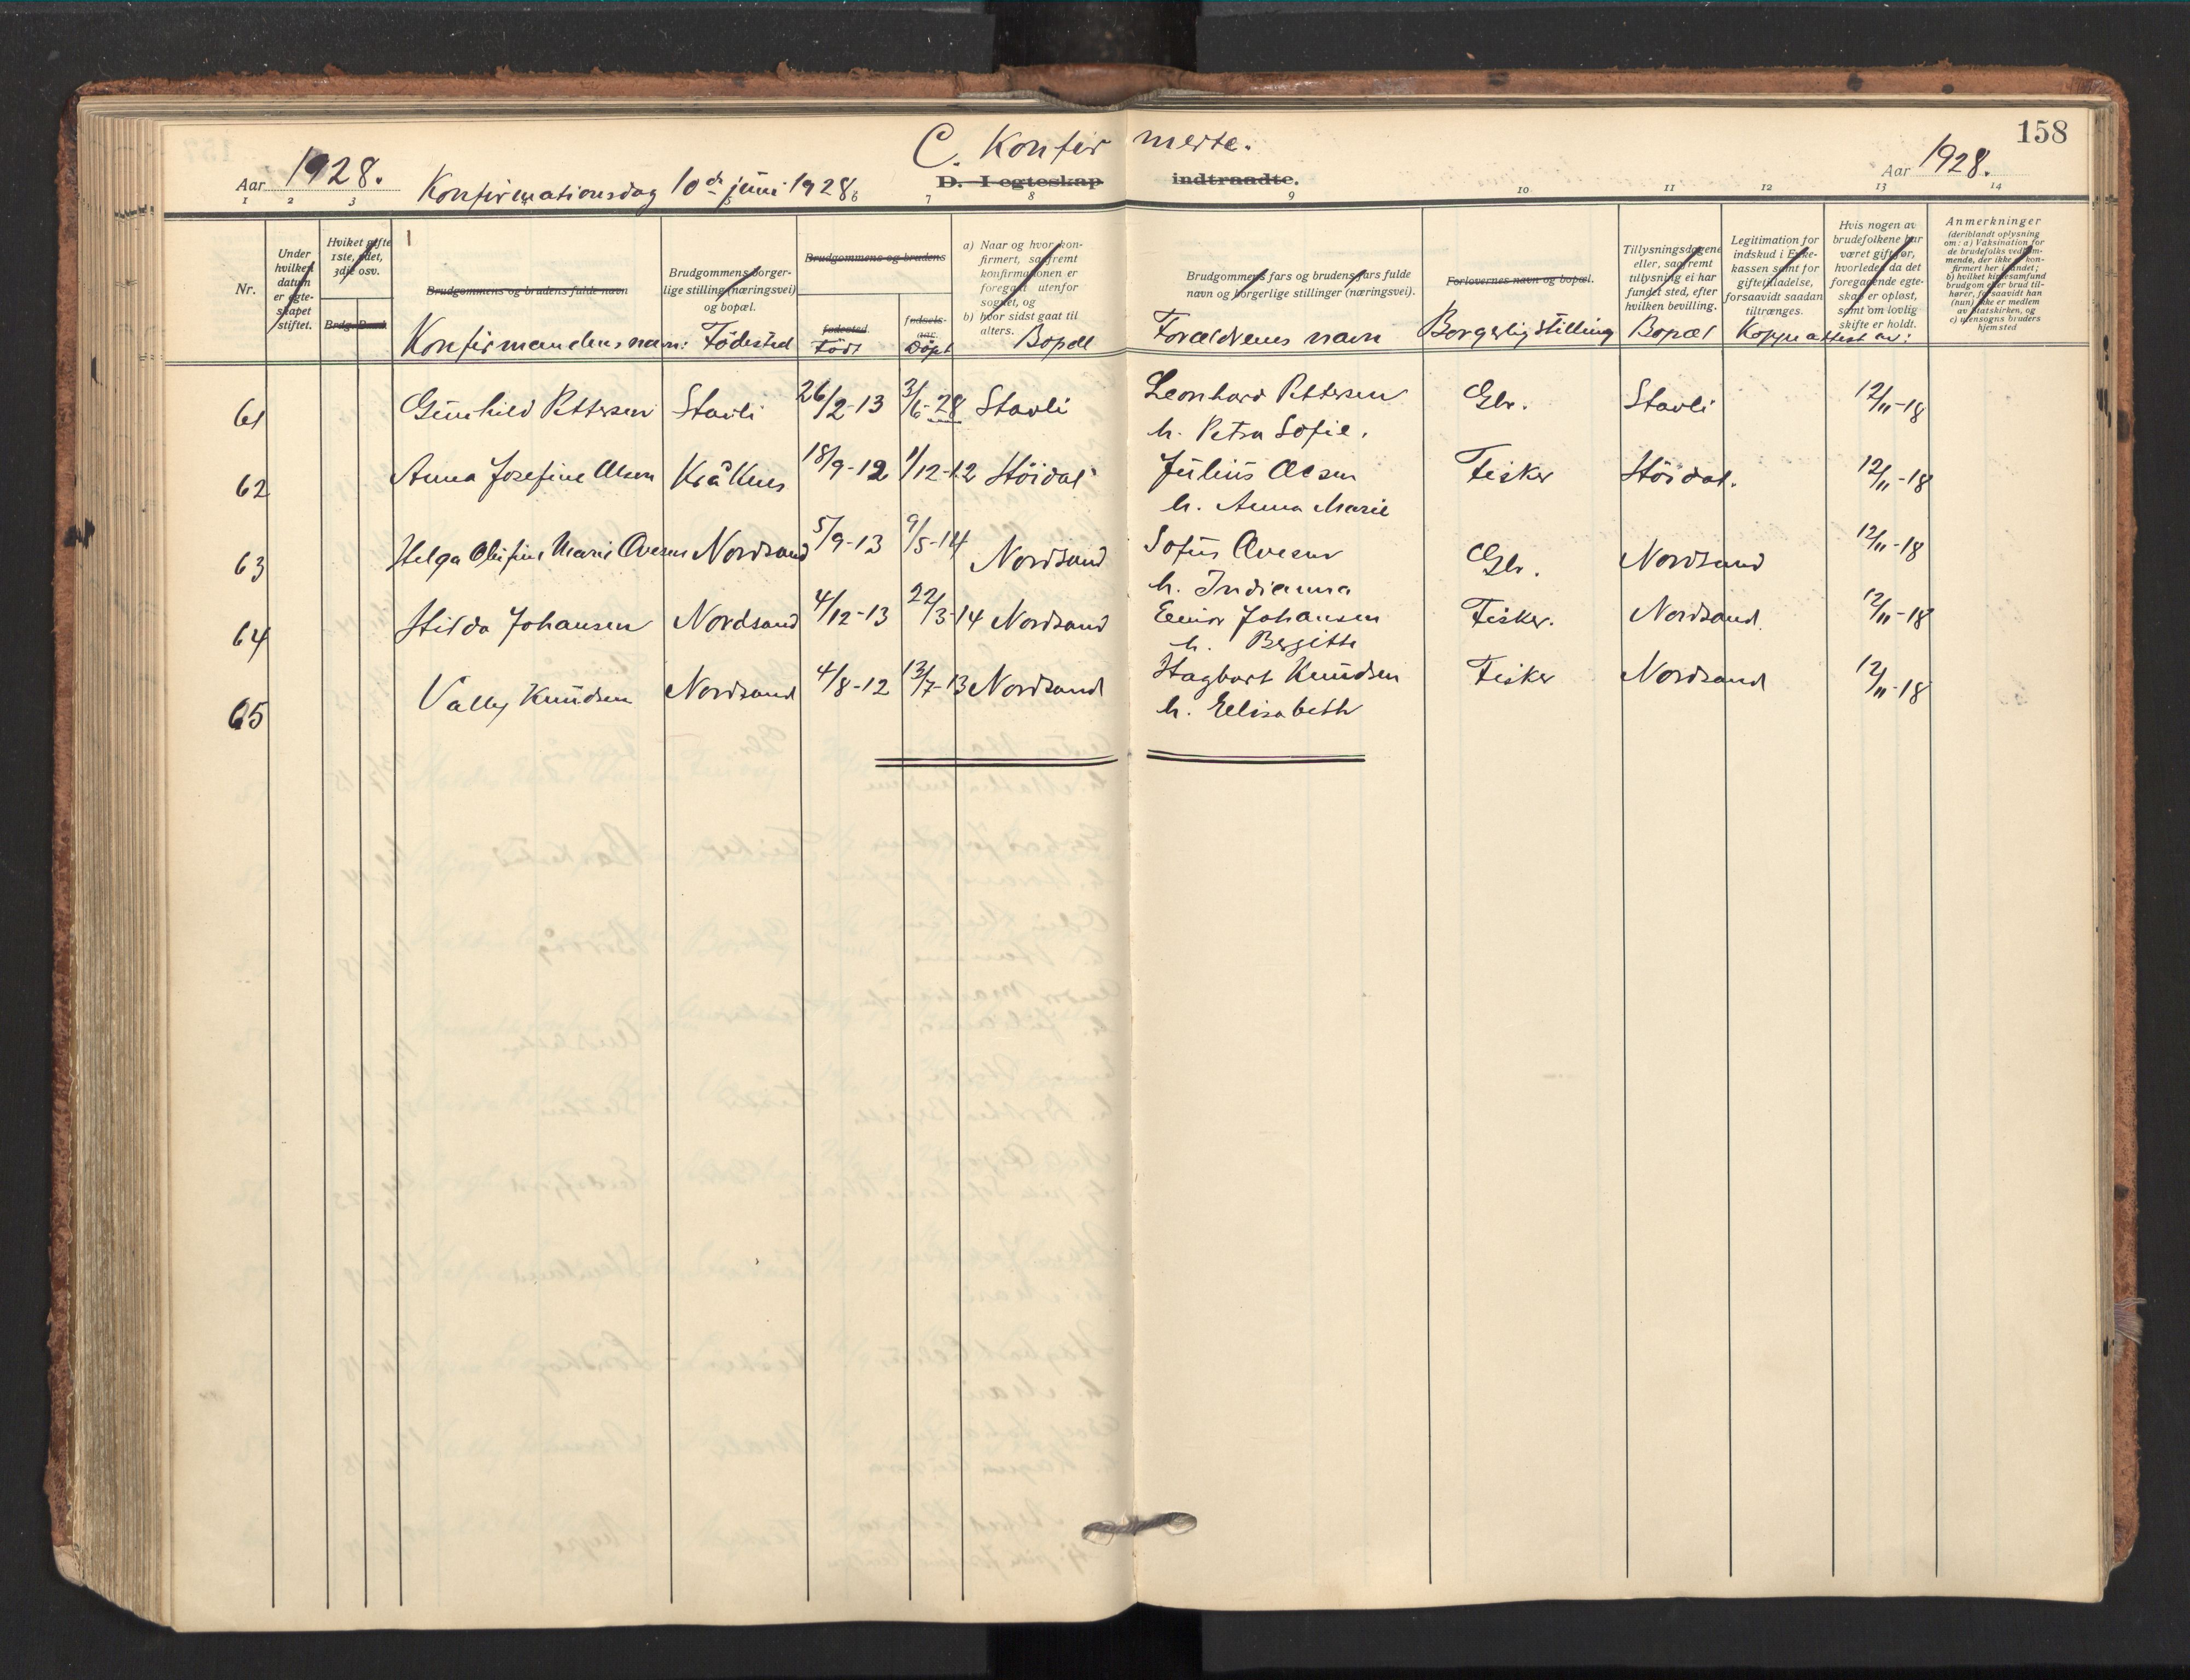 158
C. Konfirmerte.
Aar 1928. Konfirmationsdag 10de juni 1928. D. I egteskap indtraadte. Aar 1928.
1 2 3 5 6 7 8 9 10 11 12 13 14
Nr.
Under
hvilken
datum
er egte-
skapet
stiftet.
Hviket gifte
1ste, 2det,
3dje osv.
Brdg. Brud
Brudgommens og brudens fulde navn
Konfirmandens navn:
Brudgommens borger-
lige stilling (næringsvei)
og bopæl.
Födested
Brudgommens og brudens
fødested.
Födt
fødsels-
aar.
Döpt
a) Naar og hvor kon-
firmert, saafremt
konfirmationen er
foregaat utenfor
sognet, og
b) hvor sidst gaat til
alters.
Bopæl
Brudgommens fars og brudens fars fulde
navn og borgerlige stillinger (næringsvei).
Forældrenes navn
Forlovernes navn og bopæl.
Borgerlig stilling
Tillysningsdagene
eller, saafremt
tillysning ei har
fundet sted, efter
hvilken bevilling.
Bopæl
Legitimation for
indskud i Enke-
kassen samt for
giftetilladelse,
forsaavidt saadan
tiltrænges.
Koppeattest av:
Hvis nogen av
brudefolkene har
været gift før,
hvorledes da det
foregaaende egte-
skap er opløst,
samt om lovlig
skifte er holdt.
Anmerkninger
(deriblandt oplysning
om: a) Vaksination for
de brudefolks vedkom-
mende, der ikke er kon-
firmert her i landet;
b) hvilket kirkesamfund
brudgom eller brud til-
hører, forsaavidt han
(hun) ikke er medlem
av statskirken, og
c) utensogns bruders
hjemsted
61 Gunhild Pettersen Stavli 26/2-13 3/6-28 Stavli Leonhard Pettersen Gbr. Stavli 12/11-18
h. Petra Sofie.
62 Anna Josefine Olsen Kråknes 18/9-12 1/12-12 Höidal Julius Olsen Fisker Höidal. 12/11-18
h. Anna Marie
63 Helga Olufine Marie Ovesen Nordsand 5/9-13 9/5-14 Nordsand Sofus Ovesen Gbr. Nordsand 12/11-18
h. Indianna
64 Hilda Johansen Nordsand 4/12-13 22/3-14 Nordsand Einar Johansen Fisker. Nordsand. 12/11-18
h. Bergitte
65 Vally Knudsen Nordsand 4/8-12 13/7-13 Nordsand Hagbart Knudsen Fisker Nordsand 12/11-18
h. Ellisabeth